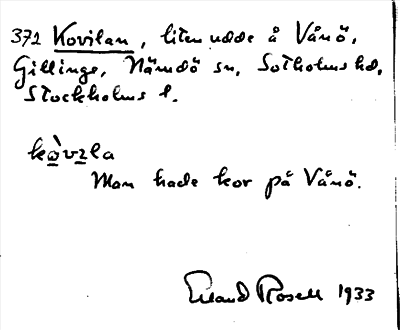 372 Kovilan, liten udde å Vånö,
Gillinge, Nämdö sn, Sotholms hd,
Stockholms l.
kòvıla
Man hade kor på Vånö.
Erland Rosell 1933